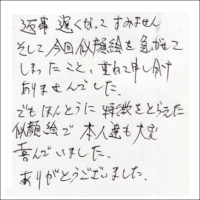 返事 遅くなって すみません
そして今回似顔絵を急がせて
しまったこと、重ねて申し分け
ありませんでした。
でもほんとうに 特徴をとらえた
似顔絵で 本人達も大変
喜んでいました。
ありがとうございました。